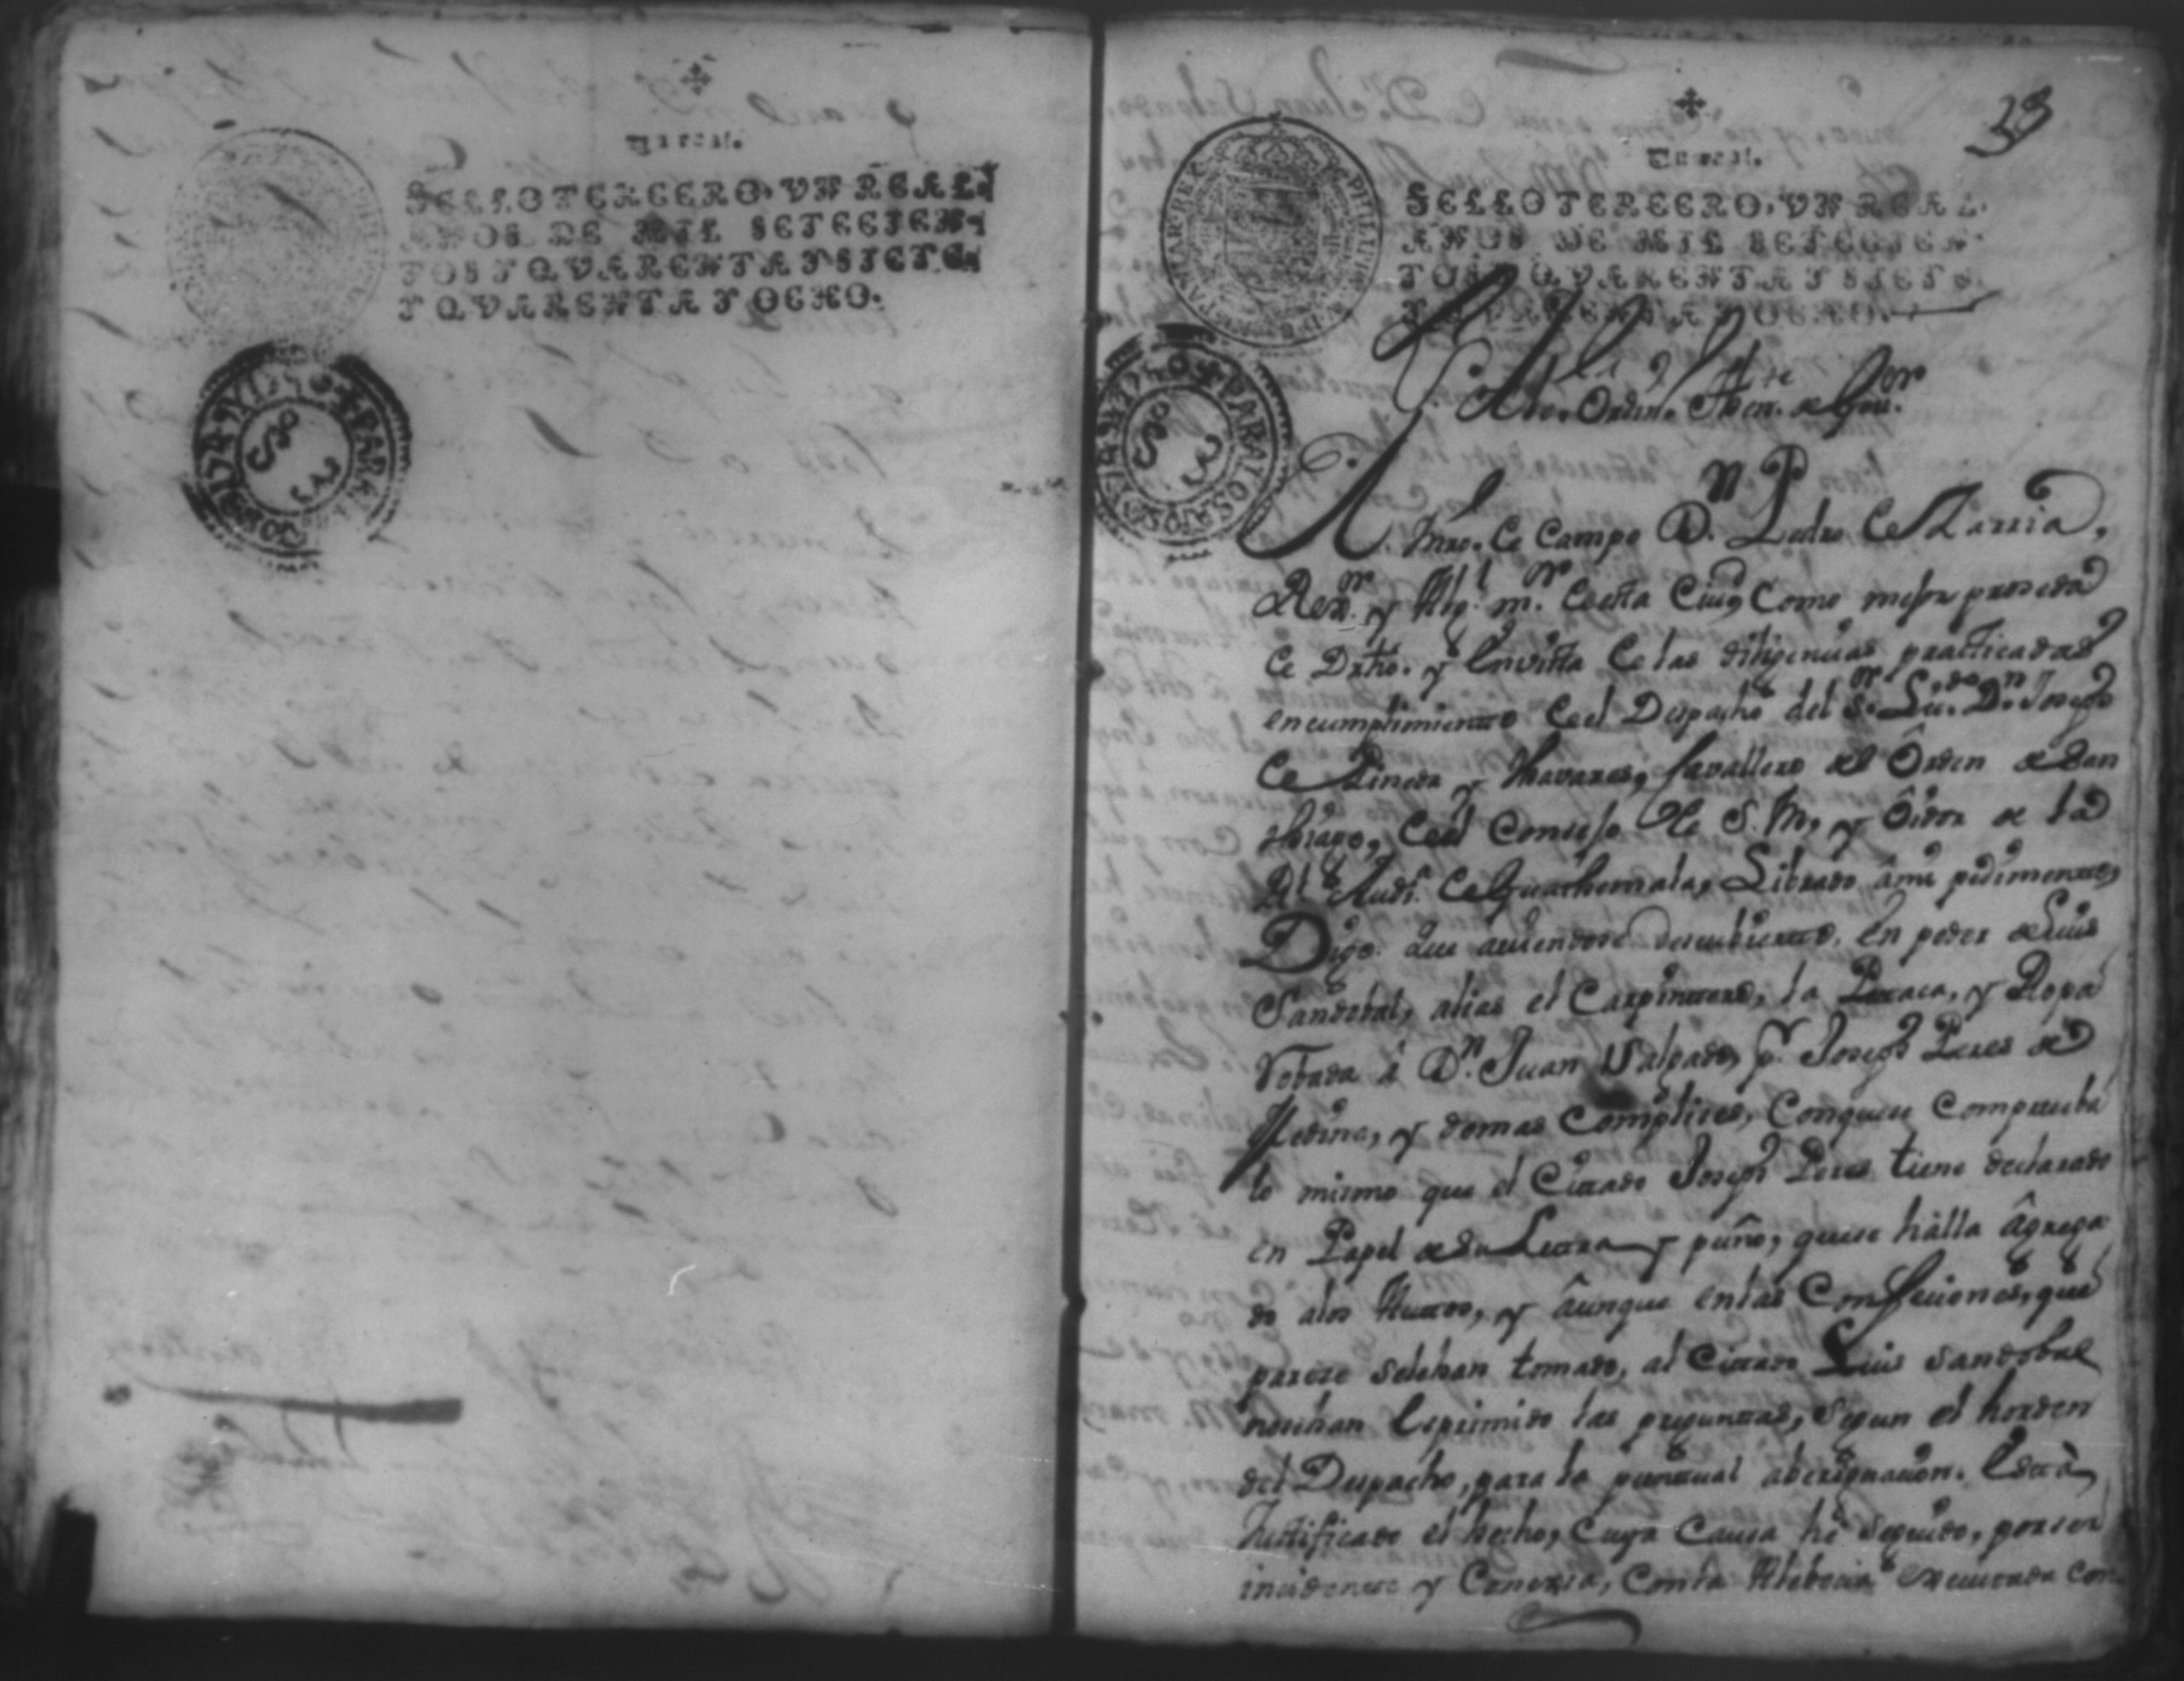 Un real.
SELLO TERCERO, VN REAL,
AÑOS DE MIL SETECIEN-
TOS Y QVARENTA Y SIETE,
Y QVARENTA Y OCHO.
33
Un real.
SELLO TERCERO, VN REAL,
AÑOS DE MIL SETECIEN-
TOS Y QVARENTA Y SIETE,
Y QVARENTA Y OCHO.
PARA LOS AÑOS
Alc.e Ordin.o Then.te de Gov.or
El Mro. de Campo D.n Pedro de Sarria,
Rex.or y Alg.l m.or de esta Ciu.d Como mejor proseda
de Drho. y en vista de las diligencias practicadas
en cumplimiento de el Despacho del S.or Liz.do D.n Joseph
de Pineda y Thavares, Cavallero del Orden de San
thiago, de el Consejo de S. M, y Oidor de la
Rl Aud.a de Guathemala, Librado â mi pedimento,
Digo que aviendose descubierto, en poder de Luis
Sandobal, alias el Carpintero, la Petaca, y Ropa
robada â D.n Juan Salgado, p.r Joseph Peres de
Medina, y demas Complices, Conque se comprueba
lo mismo que el Cittado Joseph Peres tiene declarado
en Papel de su Lettra y puño, que se hâlla âgrega
do a los Auttos, y âunque en las Confeciones, que
parese se le han tomado, al Cittado Luis Sandobal
no se han esprimido las preguntas, segun el horden
del Despacho, para la punttual aberiguacion. Está
Justificado el hecho, Cuya Causa hé seguido, por ser
incidente y Conexsa, Con la Alebocia executada con